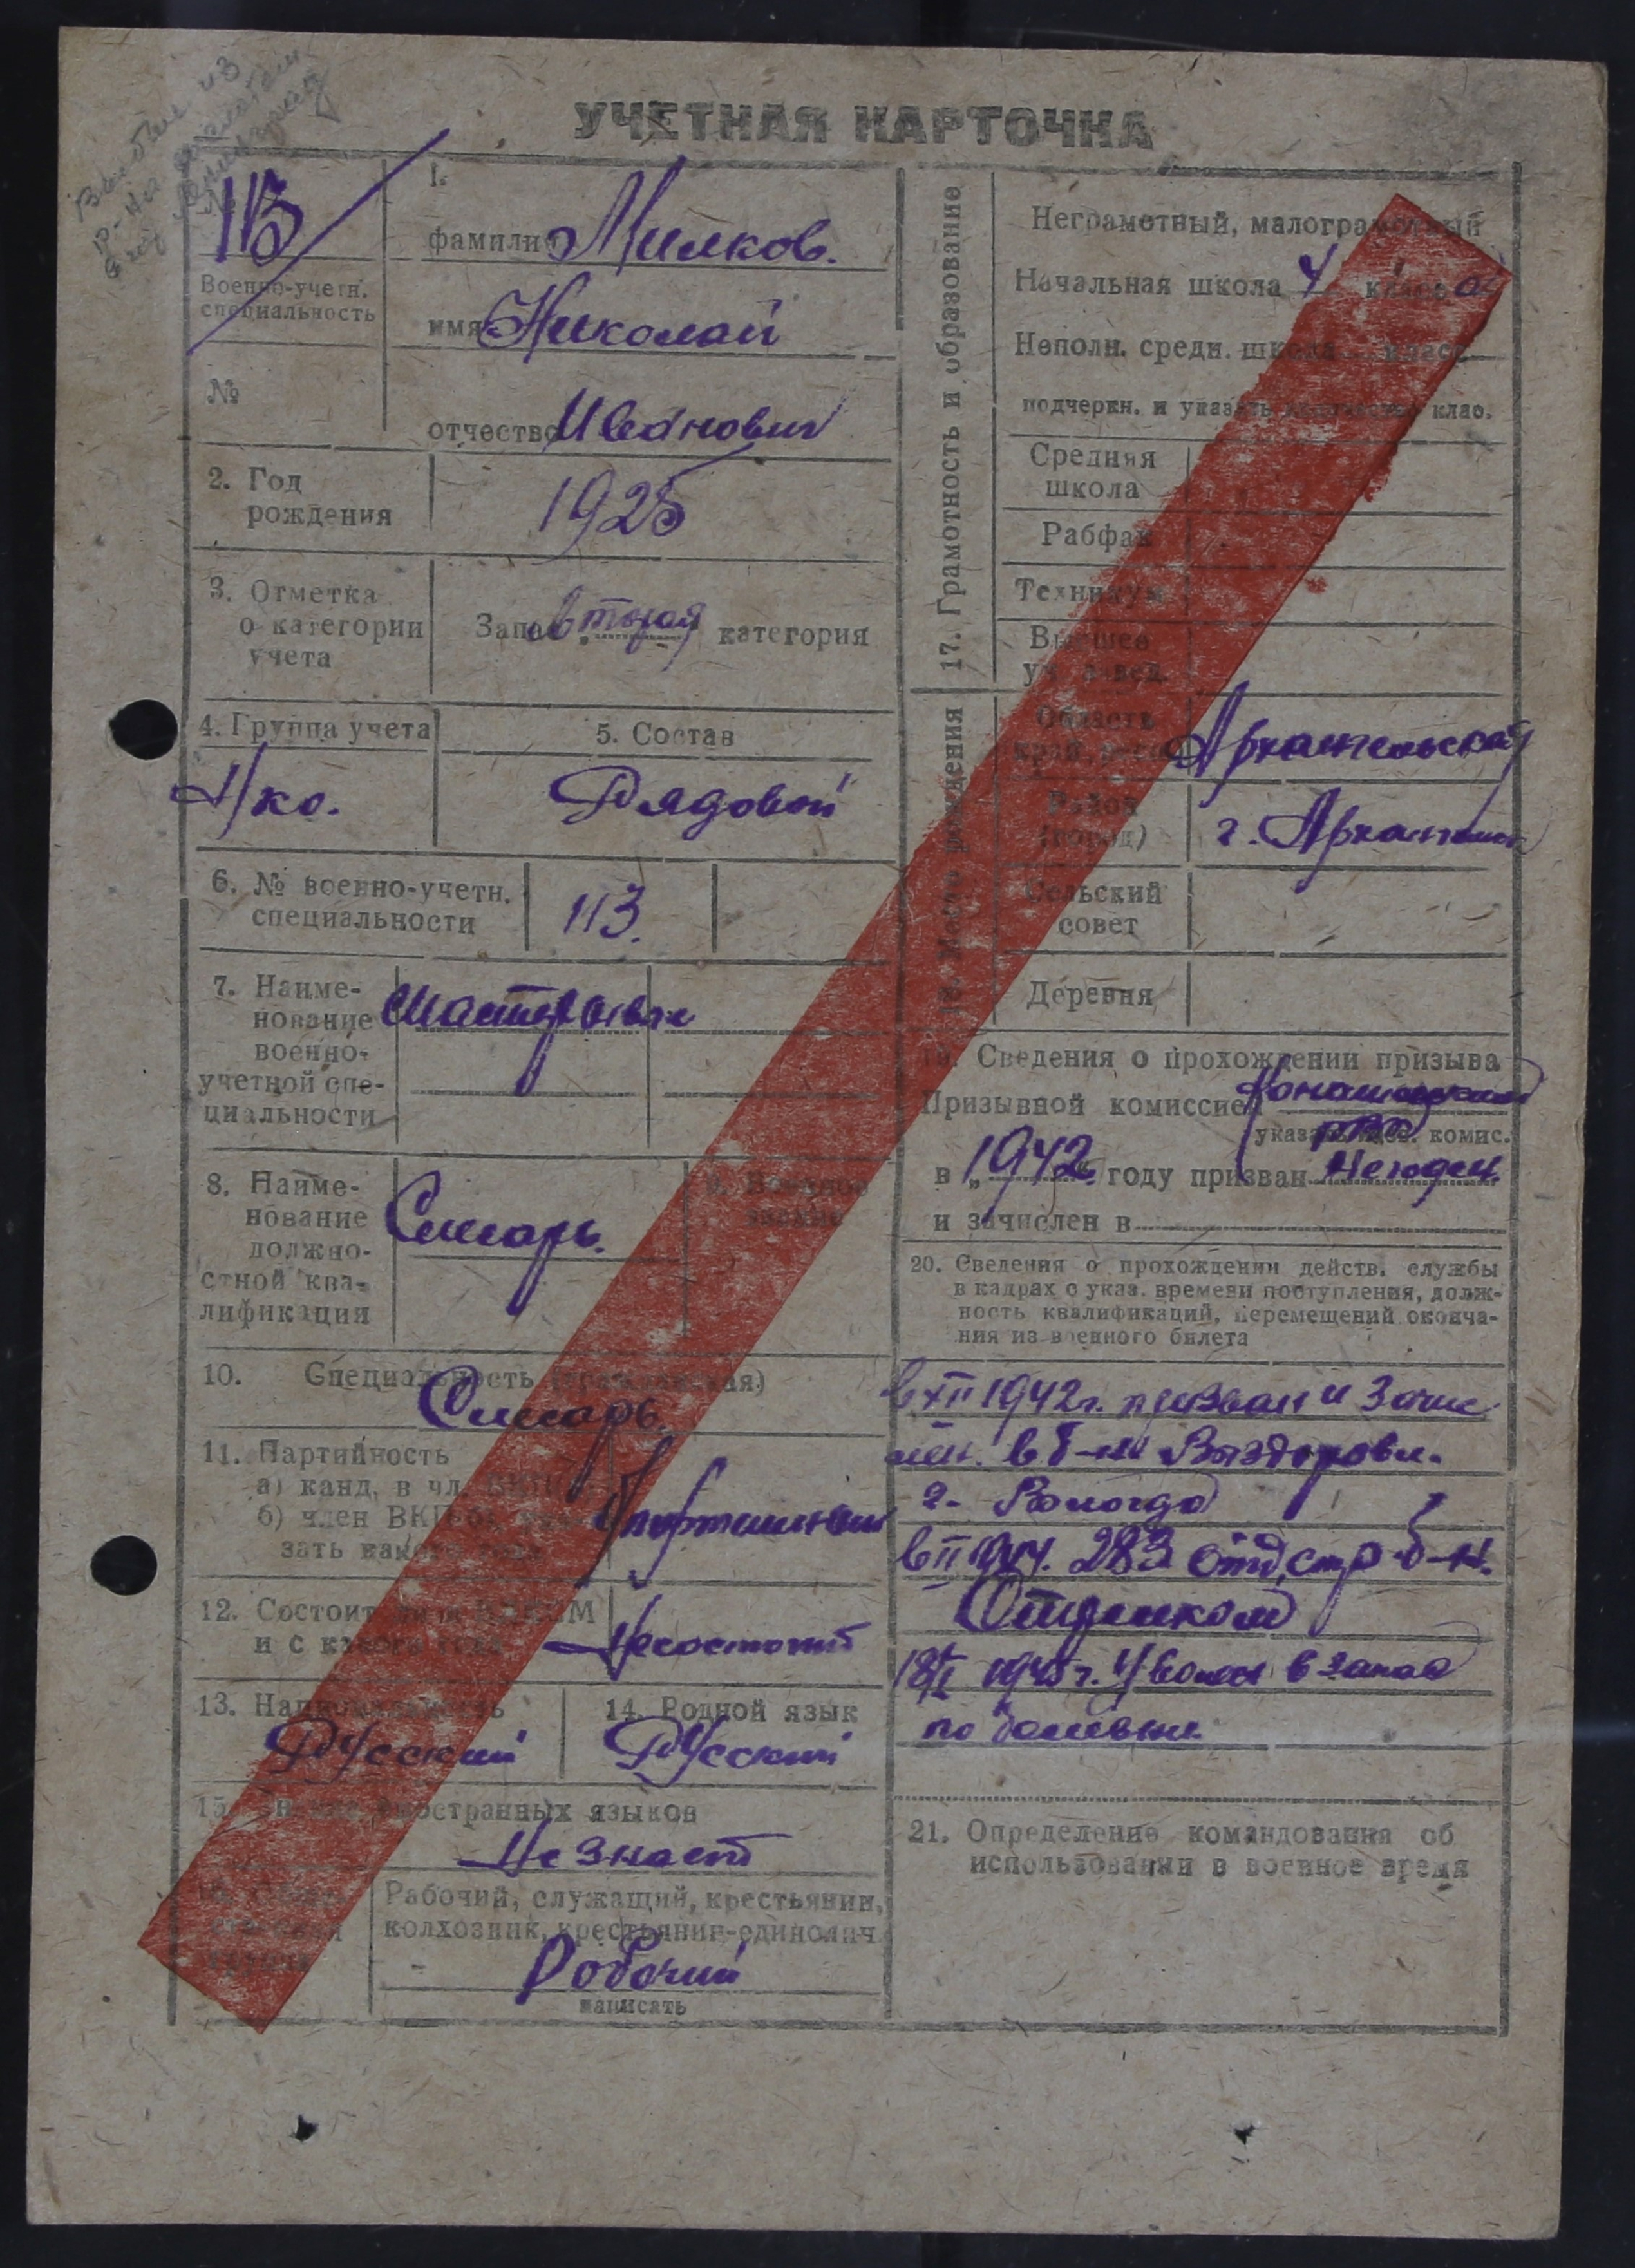 УЧЕТНАЯ КАРТОЧКА
113
Военно-учетн.
специальность
№
1.
фамилия Милков.
имя Николай
отчество Иванович
2. Год
рождения
1925
3. Отметка
о категории
учета
Запас „вторая категория
4. Группа учета
Н/ка.
5. Состав
Рядовой
6. № военно-учетн.
специальности
113.
7. Наиме-
нование
военно-
учетной спе-
циальности
Мастеровые
8. Наиме-
нование
должно-
стной ква-
лификация
Слесарь.
9. Военное
звание
10. Специальность (гражданская)
Слесарь.
11. Партийность
а) канд. в чл. ВКП
б) член ВКП
зать какого года
б/партийный
12. Состоит ли в ВЛКСМ
и с какого года
Несостоит
13. Национальность
Русский
14. Родной язык
Русский
15. Знание иностранных языков
Не знает
Рабочий, служащий, крестьянин,
колхозник, крестьянин-единолич
Рабочий
написать
17. Грамотность и образование
Неграмотный, малограмотный
Начальная школа 4 класса
Неполн. средн. школа класс
подчеркн. и указать количество клас.
Средняя
школа
Рабфак
Техникум
Высшее
уч. завед.
18. Место рождения
Область
край, респ.
Архангельская
Район
(город)
г. Архангельск
Сельский
совет
Деревня
19. Сведения о прохождении призыва
Призывной комиссией
РВК
указать наз. комис.
в „1942" году призван
и зачислен в
20. Сведения о прохождении действ. службы
в кадрах с указ. времени поступления, долж-
ность квалификаций, перемещений оконча-
ния из военного билета
в XII 1942г. призван и зачис
лен. в б-н Выздоровл.
г. Вологда
в II 283 отд. стр б-н.
18/I 1945г. Уволен в запас
по болезни
21. Определение командования об
использовании в военное время